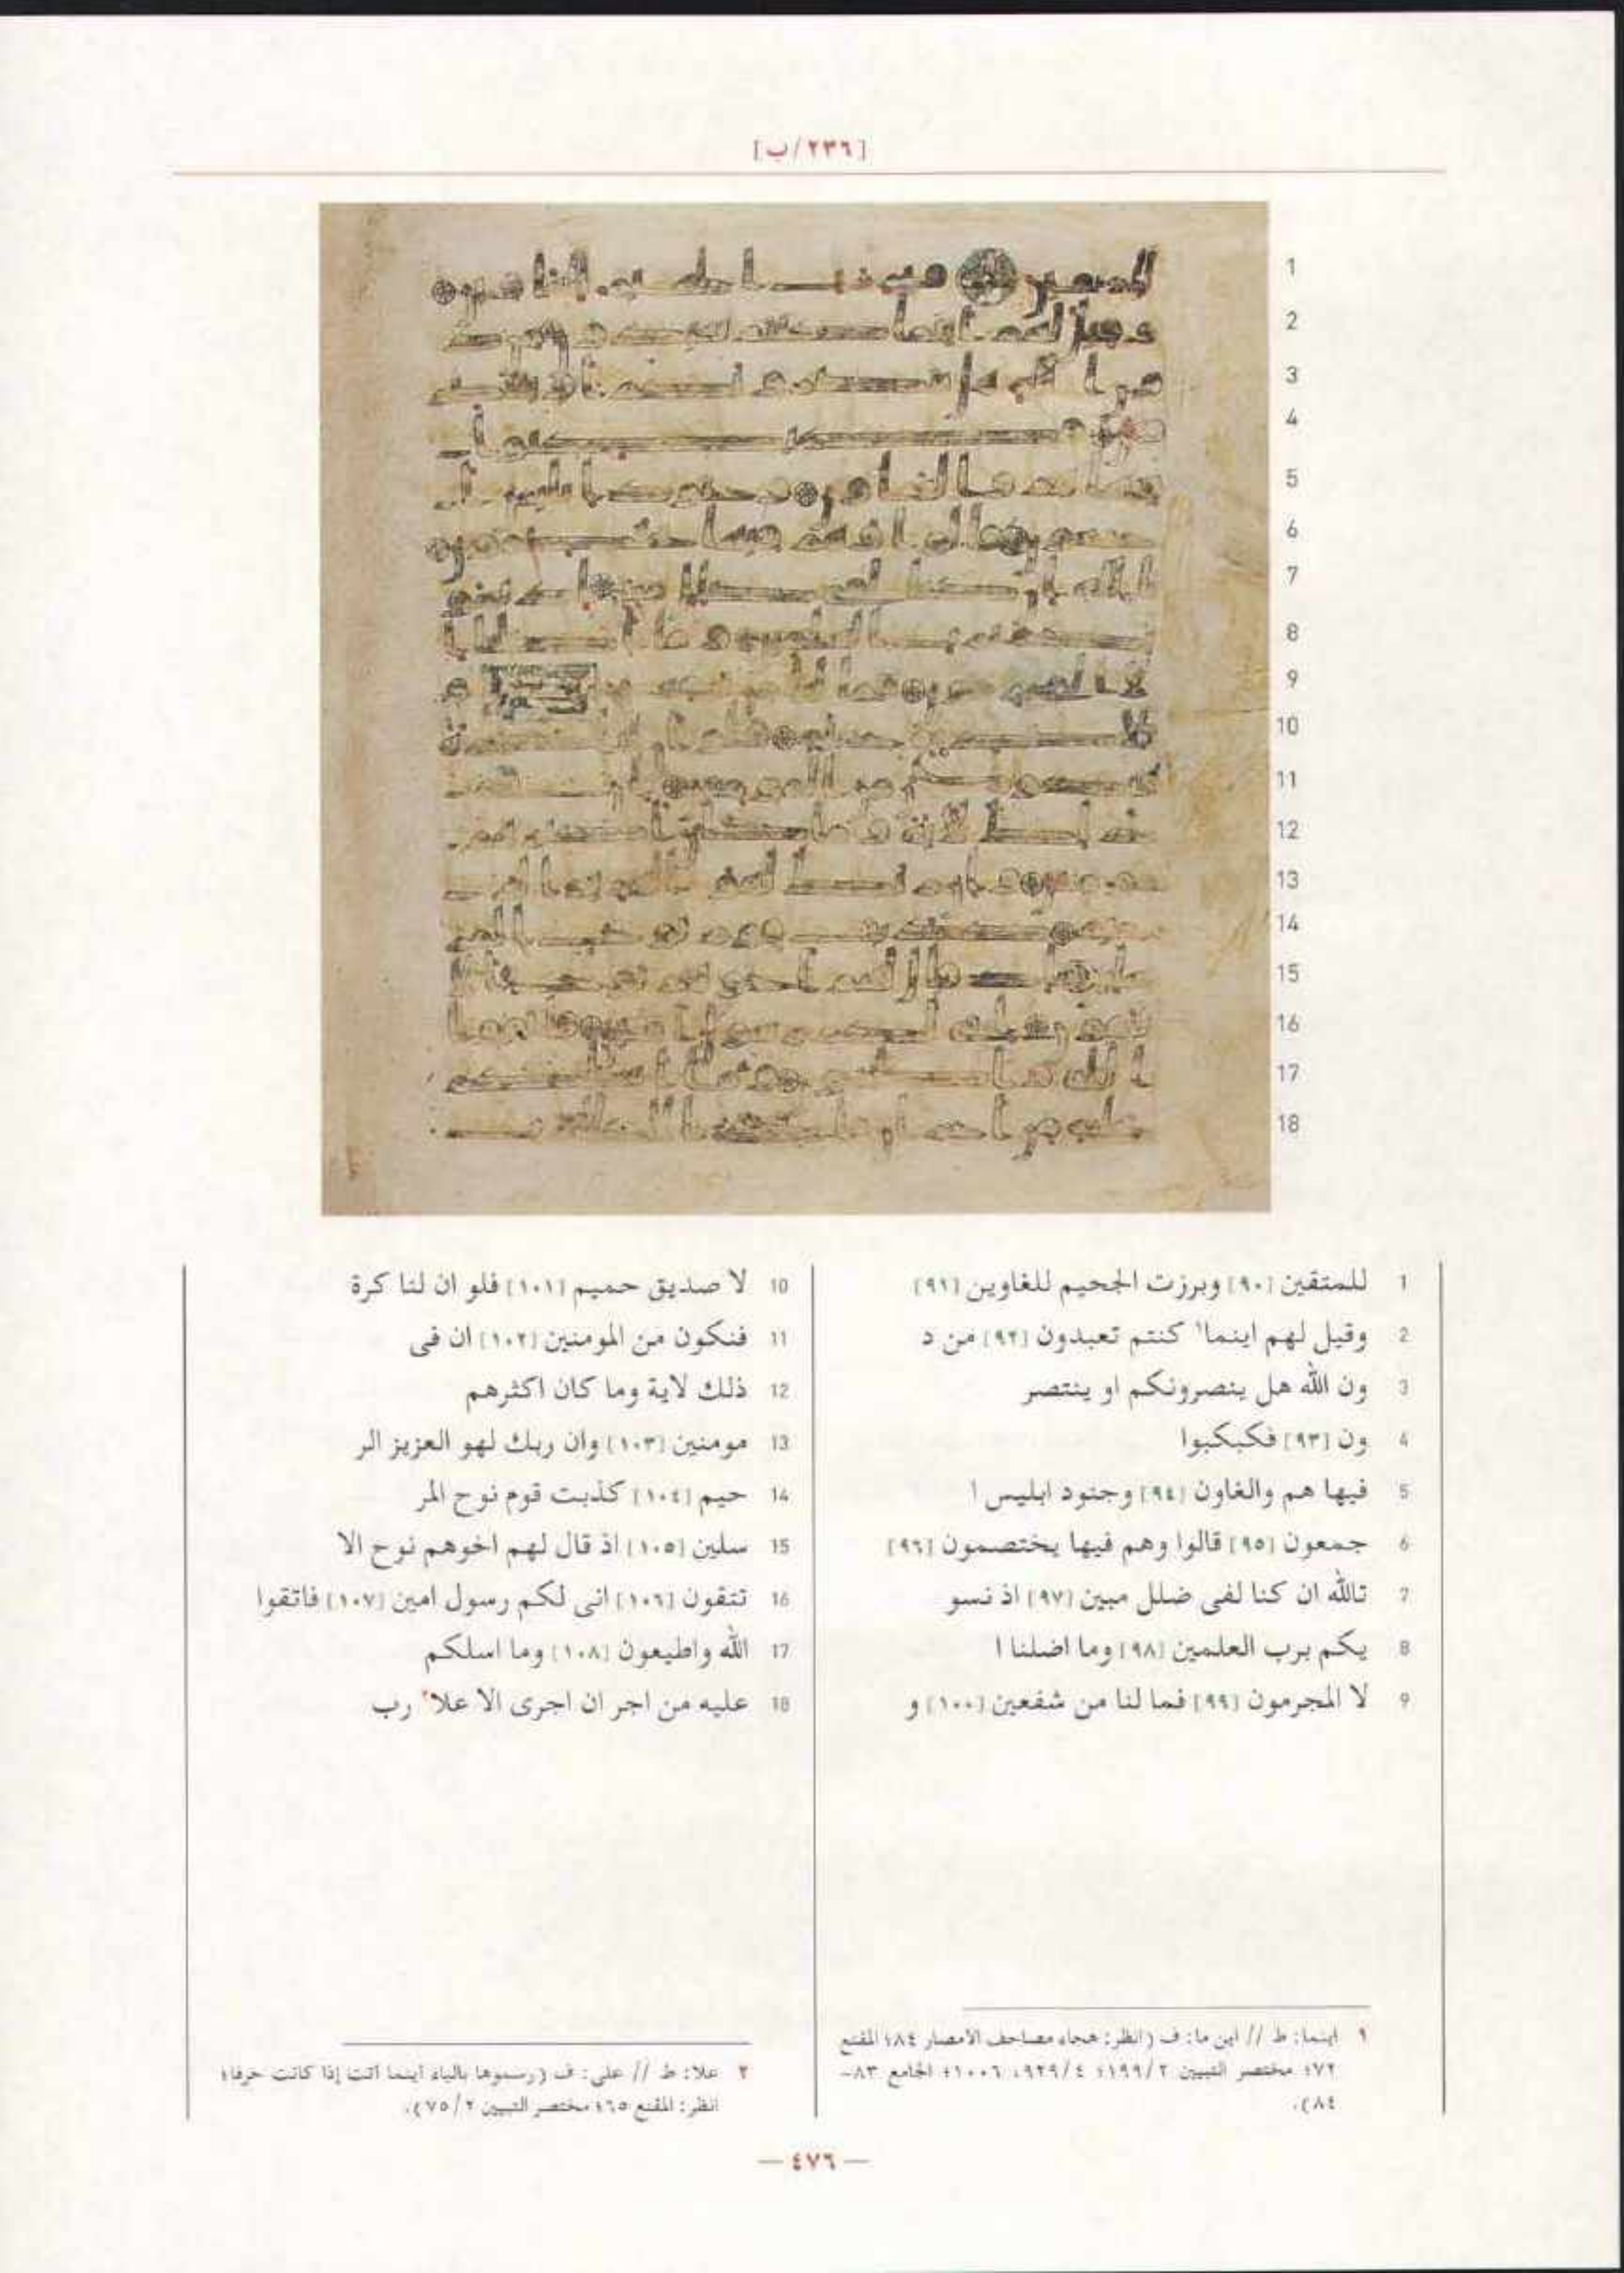 [٢٣٦/ب]
1 للمتقين [٩٠] وبرزت الجحيم للغاوين [٩١]
2 وقيل لهم اينما١ كنتم تعبدون [٩٢] من د
3 ون الله هل ينصرونكم او ينتصر
4 ون [٩٣] فكبكبوا
5 فيها هم والغاون [٩٤] وجنود ابليس ا
6 جمعون [٩٥] قالوا وهم فيها يختصمون [٩٦]
7 تالله ان كنا لفى ضلل مبين [٩٧] اذ نسو
8 يكم برب العلمين [٩٨] وما اضلنا ا
9 لا المجرمون [٩٩] فما لنا من شفعين [١٠٠] و
10 لا صديق حميم [١٠١] فلو ان لنا كرة
11 فنكون من المومنين [١٠٢] ان فى
12 ذلك لاية وما كان اكثرهم
13 مومنين [١٠٣] وان ربك لهو العزيز الر
14 حيم [١٠٤] كذبت قوم نوح المر
15 سلين [١٠٥] اذ قال لهم اخوهم نوح الا
16 تتقون [١٠٦] انى لكم رسول امين [١٠٧] فاتقوا
17 الله واطيعون [١٠٨] وما اسلكم
18 عليه من اجر ان اجرى الا علا٢ رب
١ اينما: ط // اين ما: ف (انظر: هجاء مصاحف الامصار ٨٤؛ المقنع
٧٢؛ مختصر التبيين ١٩٩/٢؛ ٩٢٩/٤، ١٠٠٦؛ الجامع ٨٣-
٨٤).
٢ علا: ط // على: ف (رسموها بالياء أينما أتت إذا كانت حرفا؛
انظر: المقنع ٦٥؛ مختصر التبيين ٧٥/٢).
— ٤٧٦ —